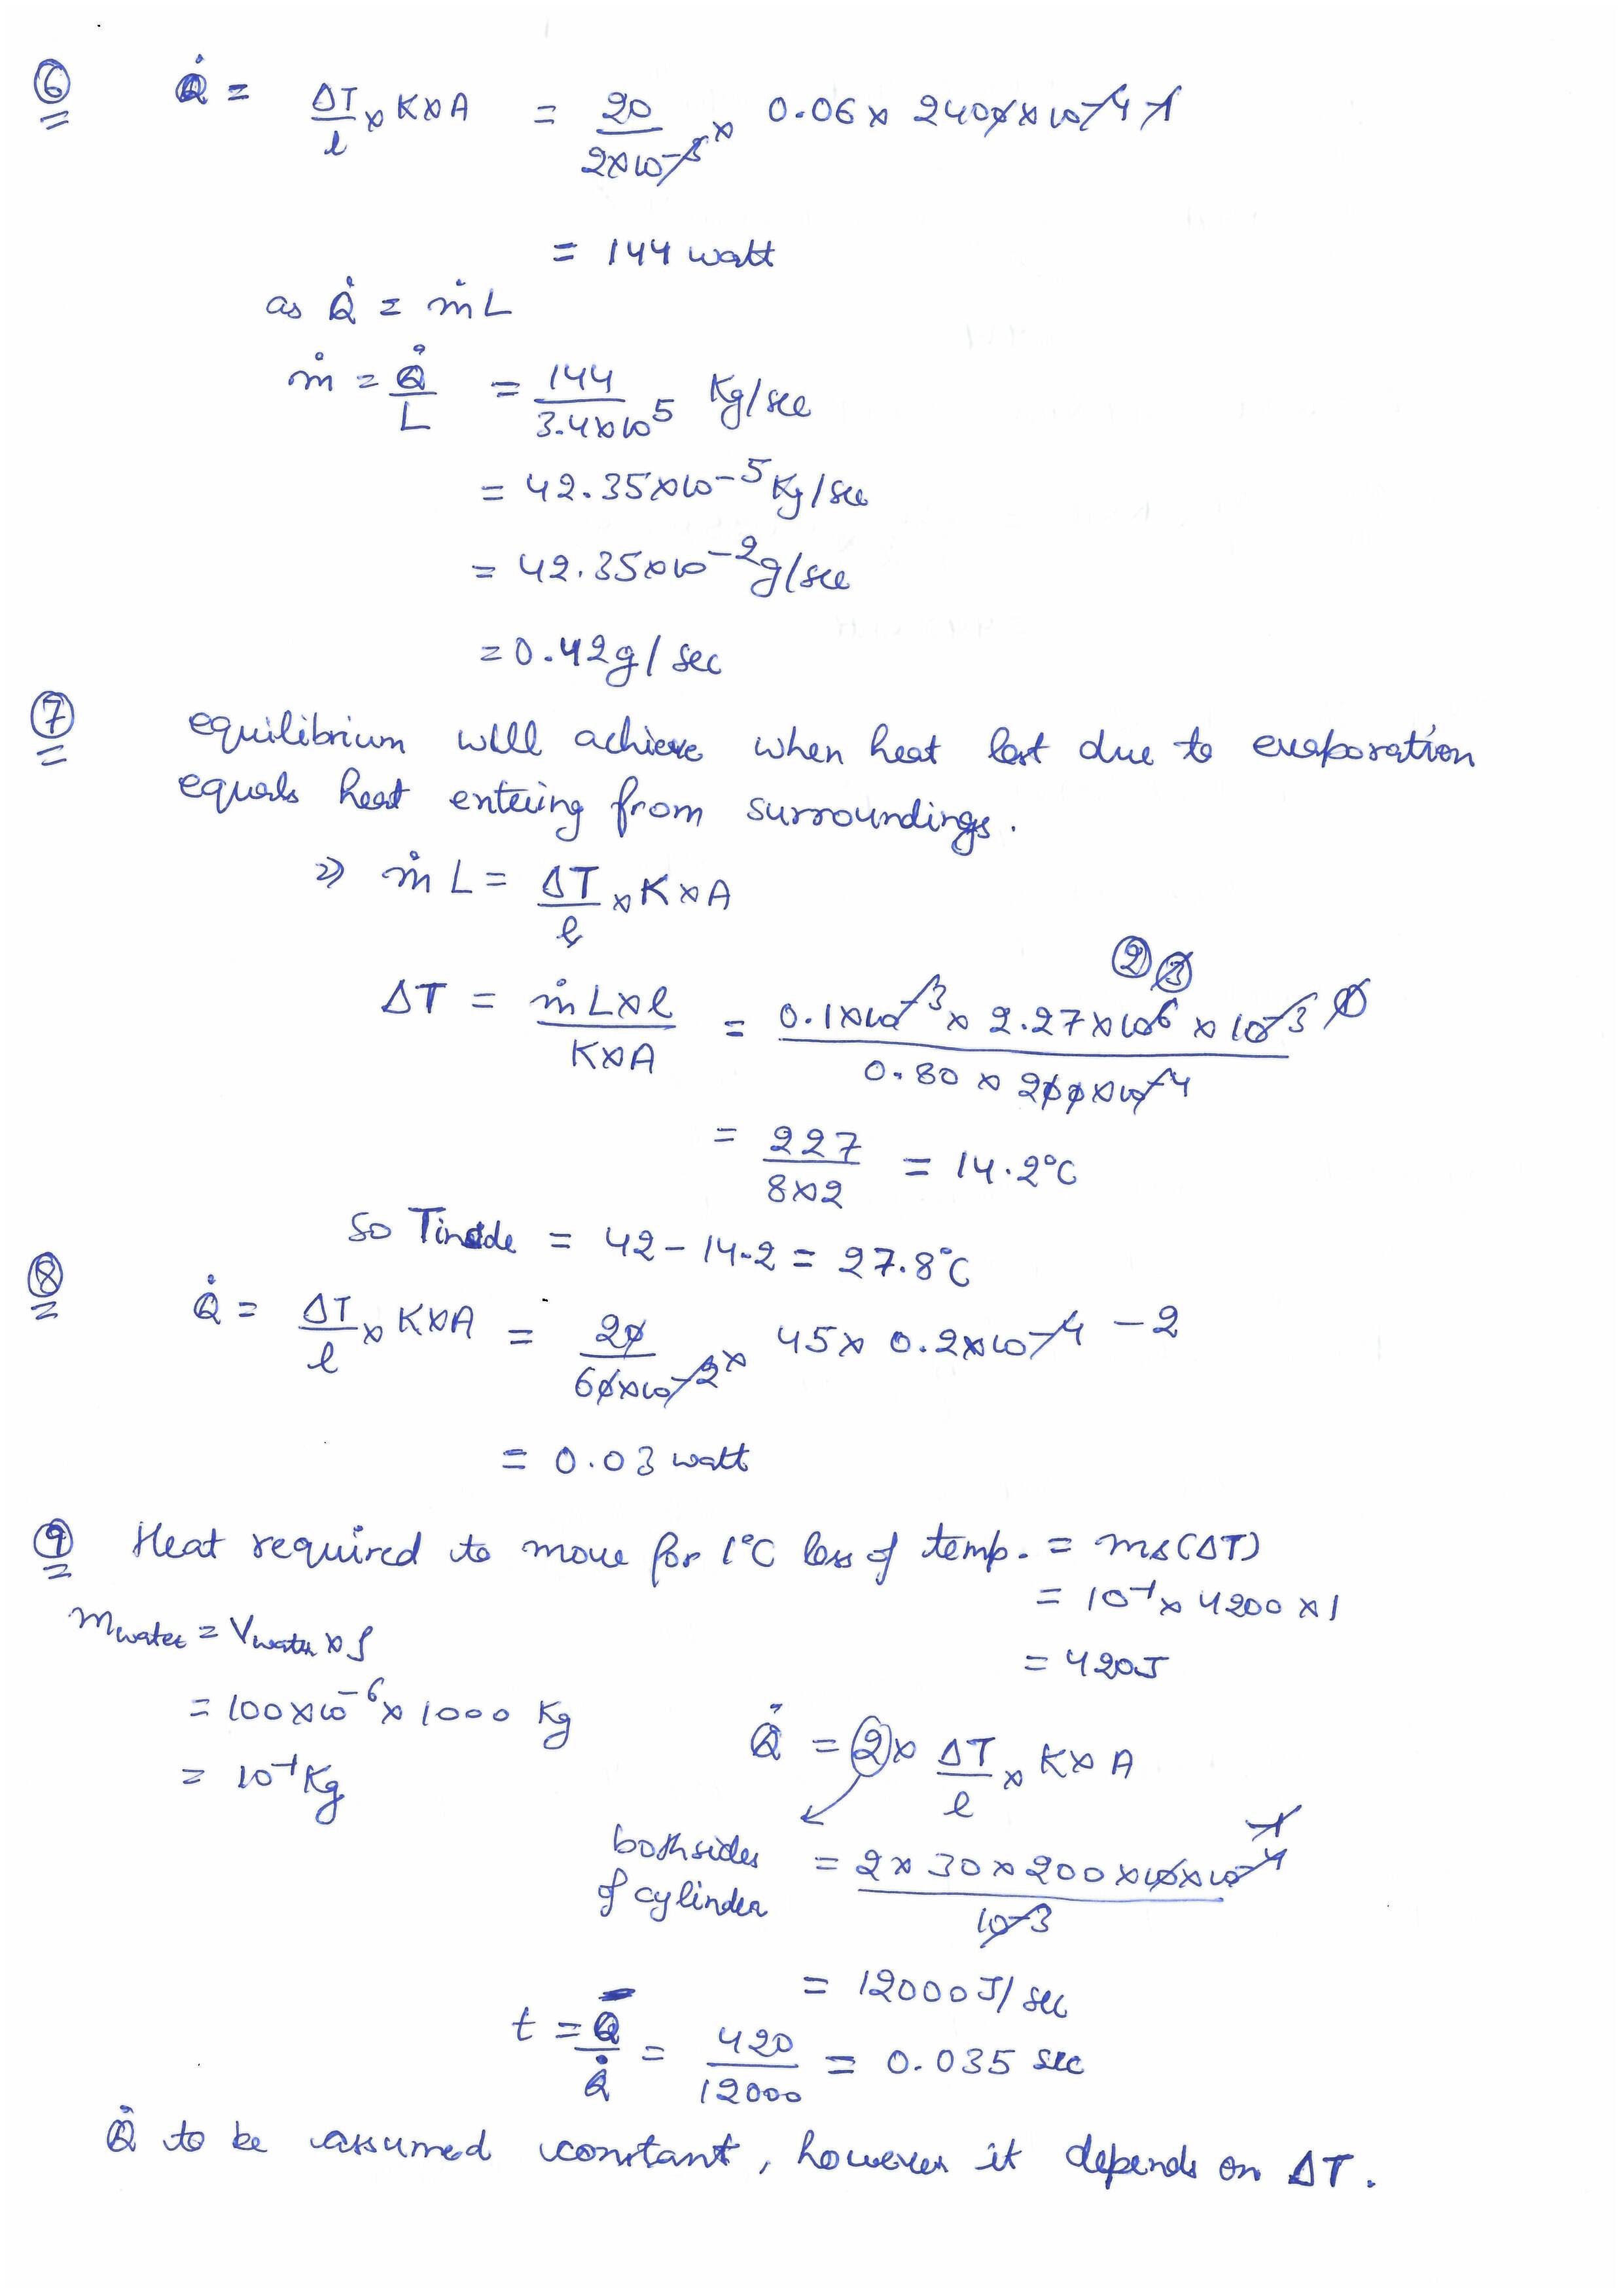 ⑥ Q̇ = ΔT/l × K × A = 20/(2×10⁻³) × 0.06 × 2400×10⁻⁴ 1
= 144 watt
as Q̇ = ṁL
ṁ = Q̇/L = 144/(3.4×10⁵) Kg/sec
= 42.35×10⁻⁵ Kg/sec
= 42.35×10⁻² g/sec
= 0.42 g/sec
⑦ equilibrium will achieve when heat lost due to evaporation
equals heat entering from surroundings.
⇒ ṁ L = ΔT/l × K × A
ΔT = ṁ L × l/(K × A) = (0.1×10⁻³ × 2.27×10⁶ × 10⁻³)/(0.80 × 200×10⁻⁴) ② ③ 0
= 227/(8×2) = 14.2°C
So Tinside = 42 - 14.2 = 27.8°C
⑧ Q̇ = ΔT/l × K × A = 20/(60×10⁻²) × 45 × 0.2×10⁻⁴ -2
= 0.03 watt
⑨ Heat required to move for 1°C loss of temp. = ms(ΔT)
= 10⁻¹ × 4200 × 1
mwater = Vwater × ρ
= 420J
= 100×10⁻⁶ × 1000 Kg
Q̇ = 2 × ΔT/l × K × A
= 10⁻¹ Kg
both sides
of cylinder
= (2 × 30 × 200 × 10 × 10⁻⁴)/10⁻³ -1
= 12000 J/sec
t = Q/Q̇ = 420/12000 = 0.035 sec
Q̇ to be assumed constant, however it depends on ΔT.